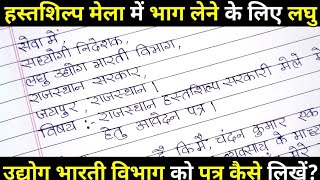 हस्तशिल्प मेला में भाग लेने के लिए लघु
सेवा में,
सहयोगी निदेशक,
लघु उद्योग भारती विभाग,
राजस्थान सरकार,
जयपुर, राजस्थान।
विषय :- राजस्थान हस्तशिल्प सरकारी मेले में
हेतु आवेदन पत्र।
है कि मैं, चंदन कुमार एक
व्यवसाय के माध्य
उद्योग भारती विभाग को पत्र कैसे लिखें?